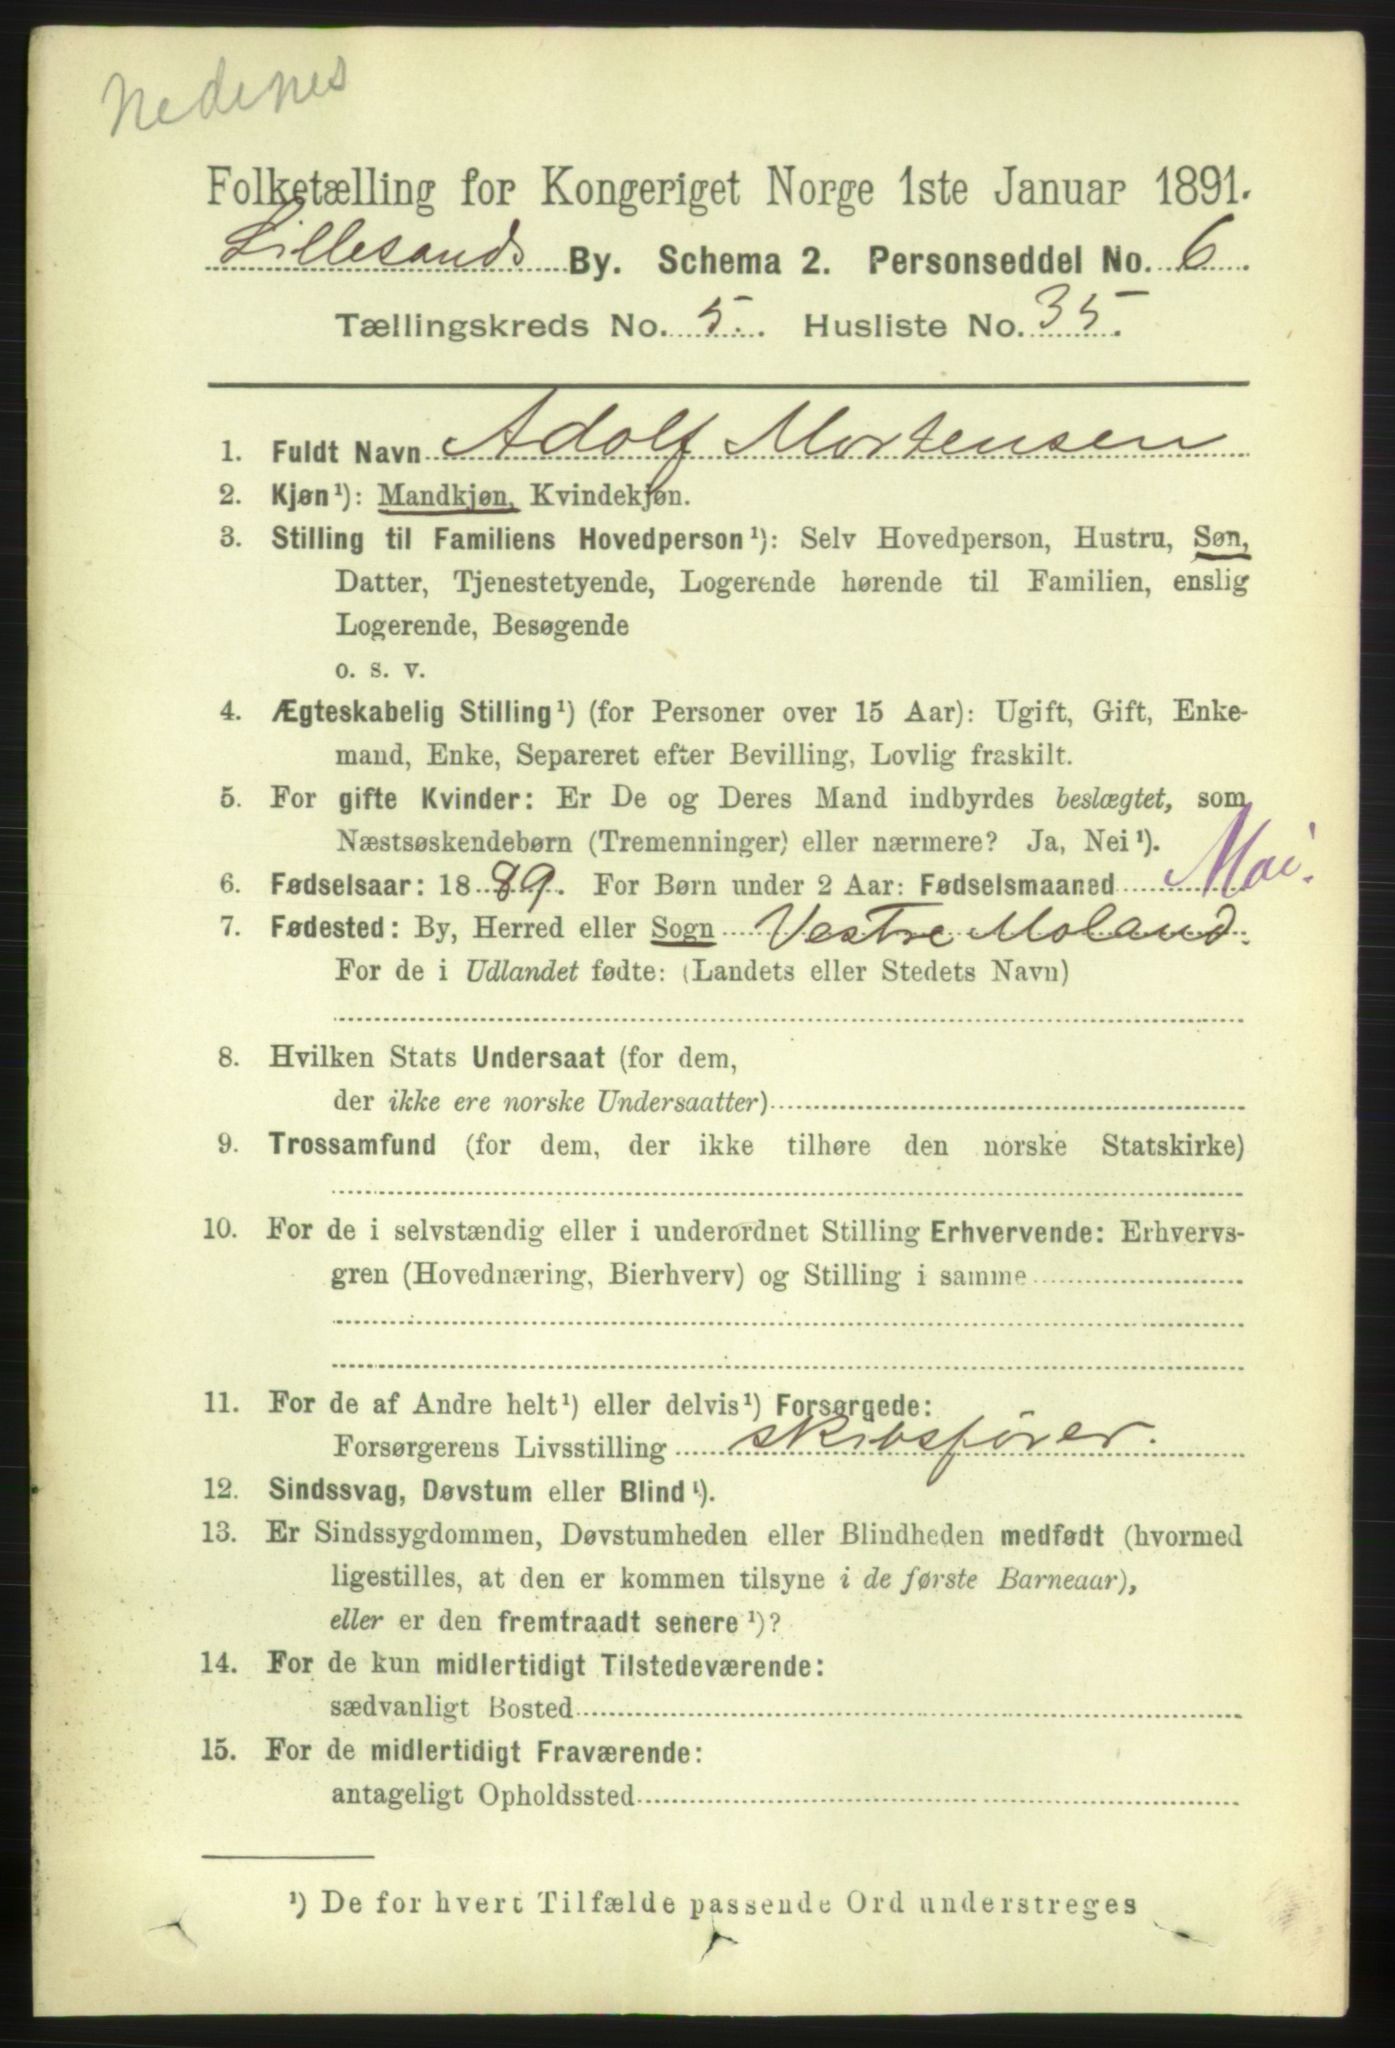 Nedenes
Folketælling for Kongeriget Norge 1ste Januar 1891.
Lillesands By. Schema 2. Personseddel No. 6
Tællingskreds No. 5. Husliste No. 35.
1. Fuldt Navn Adolf Mortensen
2. Kjøn¹): Mandkjøn, Kvindekjøn.
3. Stilling til Familiens Hovedperson¹): Selv Hovedperson, Hustru, Søn,
Datter, Tjenestetyende, Logerende hørende til Familien, enslig
Logerende, Besøgende
o. s. v.
4. Ægteskabelig Stilling¹) (for Personer over 15 Aar): Ugift, Gift, Enke-
mand, Enke, Separeret efter Bevilling, Lovlig fraskilt.
5. For gifte Kvinder: Er De og Deres Mand indbyrdes beslægtet, som
Næstsøskendebørn (Tremenninger) eller nærmere? Ja, Nei¹).
6. Fødselsaar: 1889. For Børn under 2 Aar: Fødselsmaaned Mai.
7. Fødested: By, Herred eller Sogn Vestre Moland.
For de i Udlandet fødte: (Landets eller Stedets Navn)
8. Hvilken Stats Undersaat (for dem,
der ikke ere norske Undersaatter)
9. Trossamfund (for dem, der ikke tilhøre den norske Statskirke)
10. For de i selvstændig eller i underordnet Stilling Erhvervende: Erhvervs-
gren (Hovednæring, Bierhverv) og Stilling i samme
11. For de af Andre helt¹) eller delvis¹) Forsørgede:
Forsørgerens Livsstilling skibsfører.
12. Sindssvag, Døvstum eller Blind¹).
13. Er Sindssygdommen, Døvstumheden eller Blindheden medfødt (hvormed
ligestilles, at den er kommen tilsyne i de første Barneaar),
eller er den fremtraadt senere¹)?
14. For de kun midlertidigt Tilstedeværende:
sædvanligt Bosted
15. For de midlertidigt Fraværende:
antageligt Opholdssted
¹) De for hvert Tilfælde passende Ord understreges